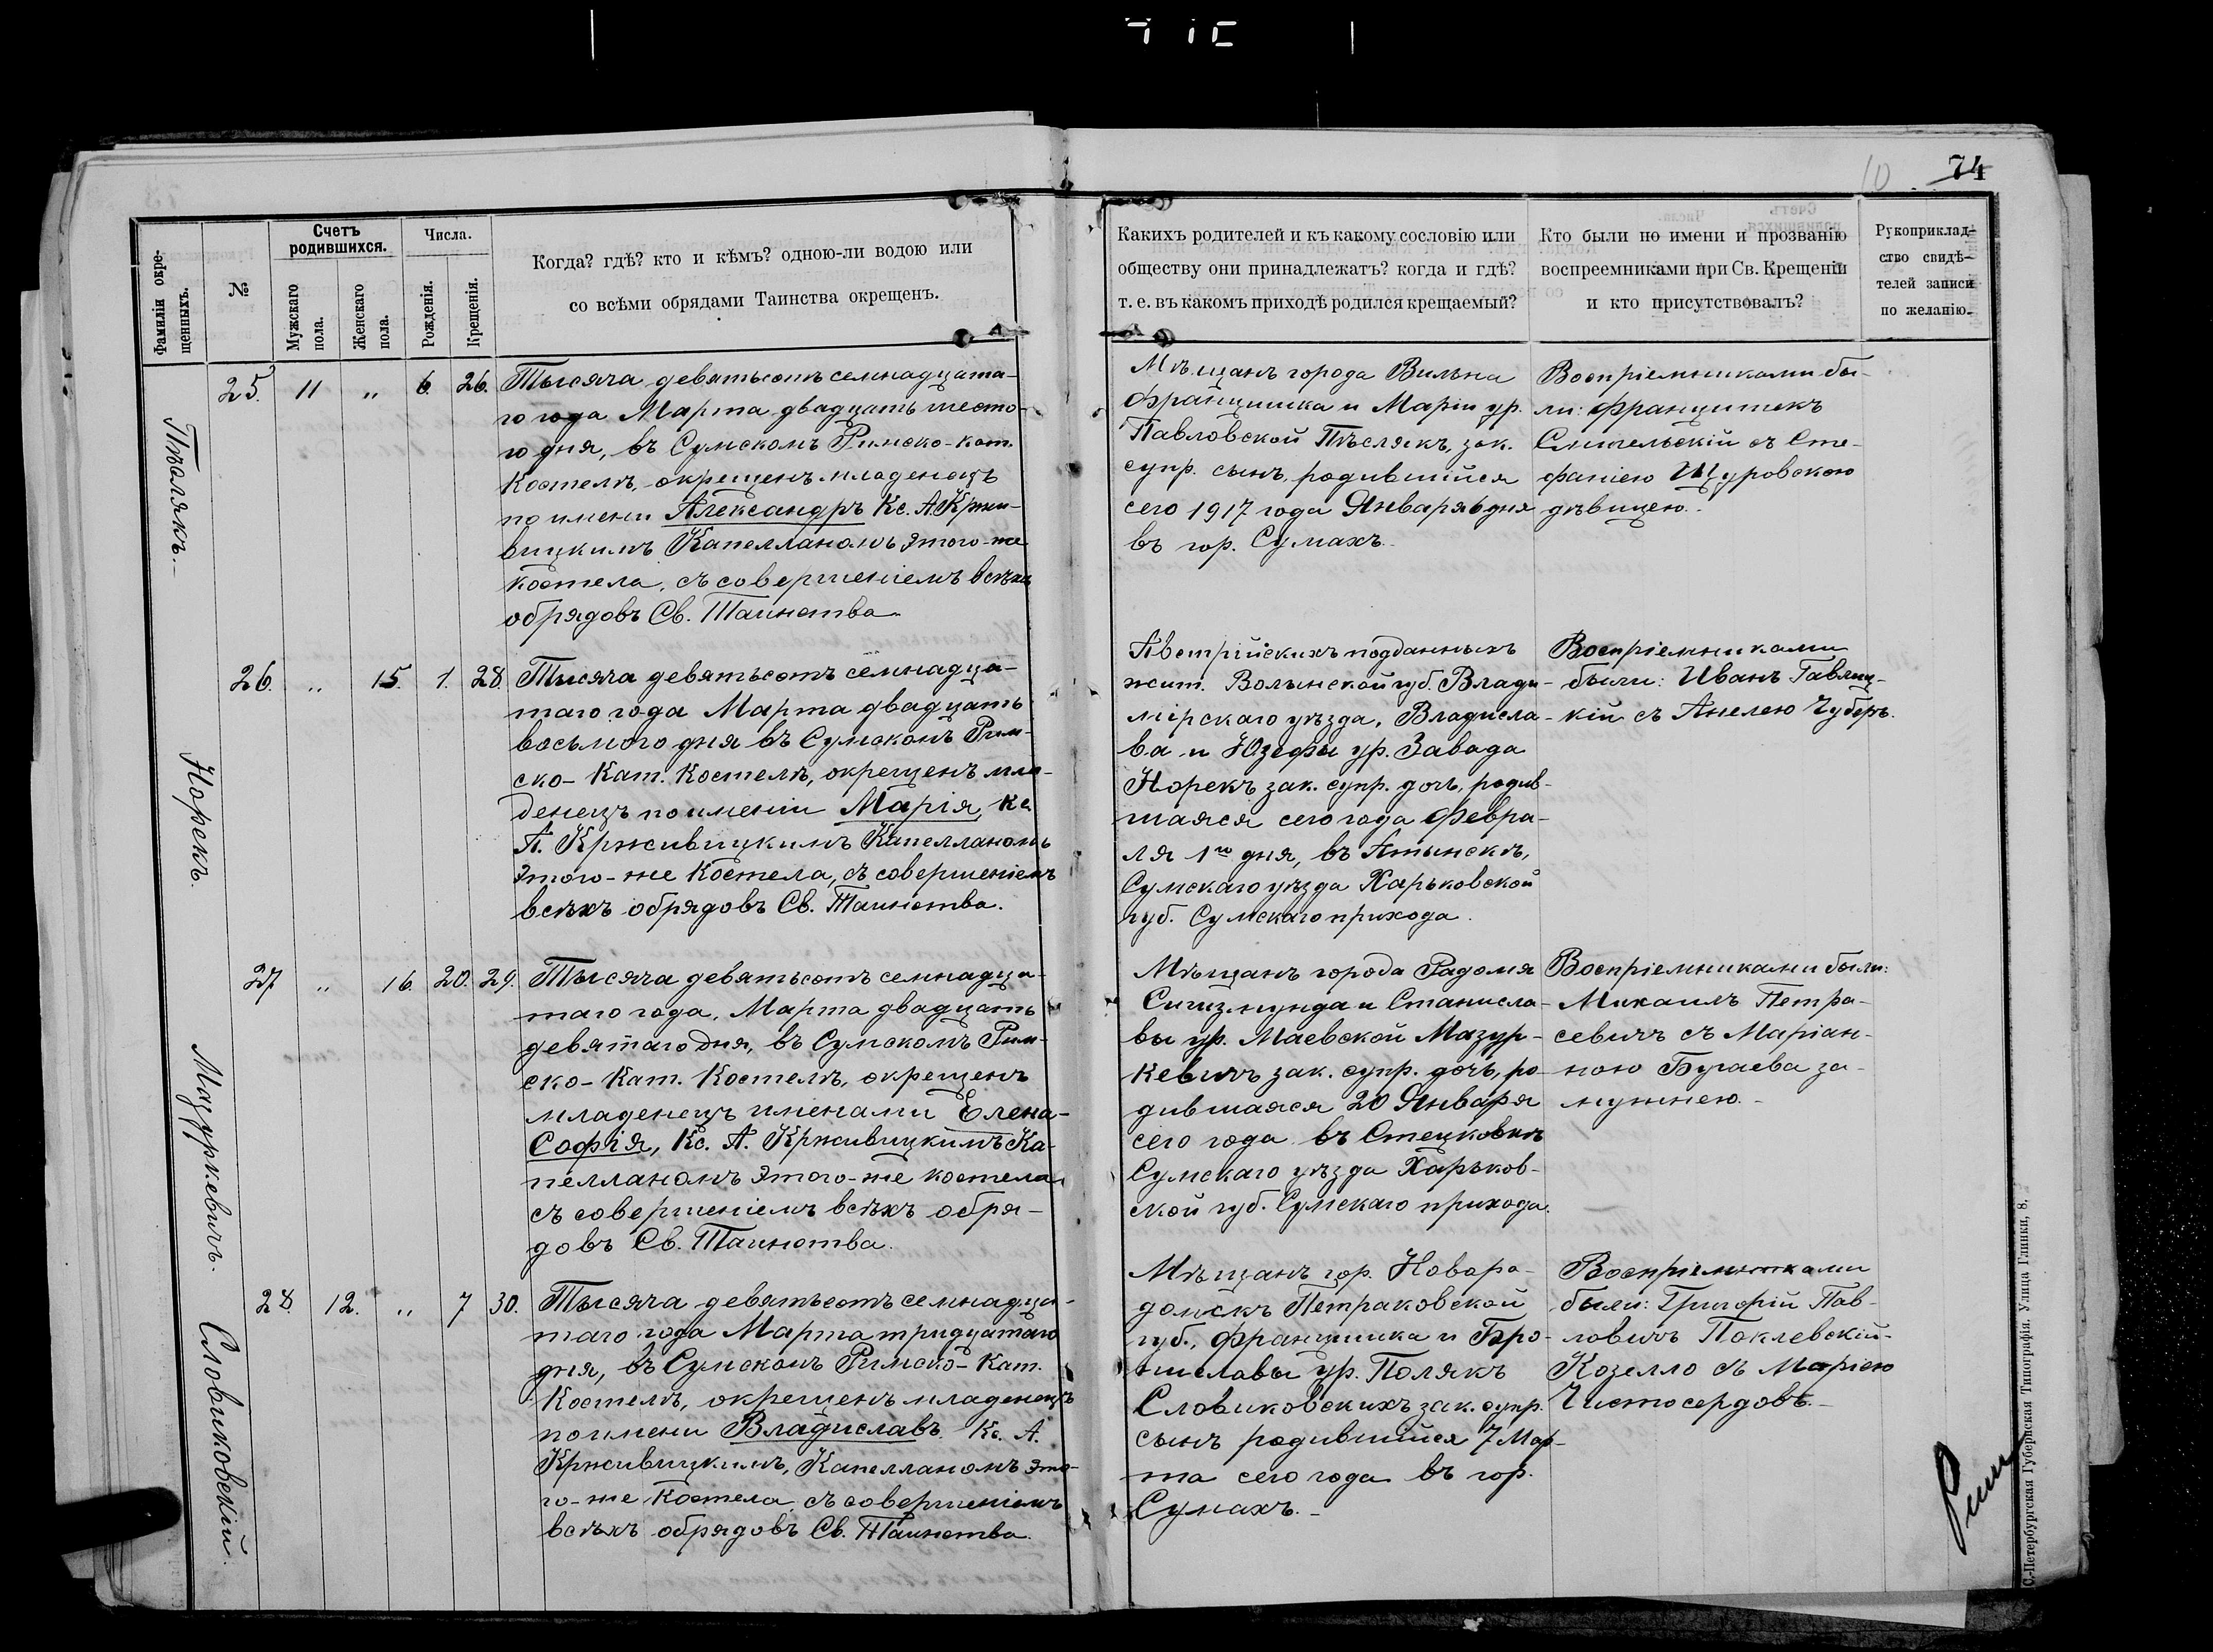 74
10
Фамиліи окре-
щенныхъ.
№
Счетъ
родившихся.
Мужскаго
пола.
Женскаго
пола.
Числа.
Рожденія.
Крещенія.
Когда? гдѣ? кто и кѣмъ? одною-ли водою или
со всѣми обрядами Таинства окрещенъ.
Какихъ родителей и къ какому сословію или
обществу они принадлежатъ? когда и гдѣ?
т. е. въ какомъ приходѣ родился крещаемый?
Кто были по имени и прозванію
воспреемниками при Св. Крещеніи
и кто присутствовалъ?
Рукоприклад-
ство свидѣ-
телей записи
по желанію.
25. 11 „ 6. 26.
Тысяча девятьсотъ семнадцата-
го года Марта двадцать шесто-
го дня, въ Сумскомъ Римско-кат.
Костелѣ, окрещенъ младенецъ
по имени Александръ Кс. А. Кржи-
вицкимъ Капелланомъ этого-же
костела, съ совершеніемъ всѣхъ
обрядовъ Св. Таинства.
Мѣщанъ города Вильна
Францишка и Маріи ур.
Павловской Пѣслякъ, зак.
супр. сынъ, родившійся
сего 1917 года Января 6 дня
въ гор. Сумахъ.
Воспріемниками бы-
ли: Францишекъ
съ Сте-
фаніею Щуровскою
дѣвицею.
Норекъ.
26. „ 15. 1. 28.
Тысяча девятьсотъ семнадца-
таго года Марта двадцать
восьмого дня въ Сумскомъ Рим-
ско-Кат. Костелѣ, окрещенъ мла-
денецъ по имени Марія, Кс.
А. Крживицкимъ Капелланомъ
этого-же Костела, съ совершеніемъ
всѣхъ обрядовъ Св. Таинства.
Австрійскихъ подданныхъ
жит. Волынской губ. Влади-
мірскаго уѣзда, Владисла-
ва и Юзефы ур. Завада
Норекъ зак. супр. дочь, родив-
шаяся сего года Февра-
ля 1го дня, въ Атынскѣ,
Сумскаго уѣзда Харьковской
губ. Сумскаго прихода.
Воспріемниками
были: Иванъ
кій съ Анелею Чуберъ.
Мазуркевичъ.
27 „ 16. 20. 29.
Тысяча девятьсотъ семнадца-
таго года, Марта двадцать
девятаго дня, въ Сумскомъ Рим-
ско-Кат. Костелѣ, окрещенъ
младенецъ именами Елена-
Софія, Кс. А. Крживицкимъ Ка-
пелланомъ этого-же костела,
съ совершеніемъ всѣхъ обря-
довъ Св. Таинства.
Мѣщанъ города Радома
Сигизмунда и Станисла-
вы ур. Маевской Мазур-
кевичъ зак. супр. дочь, ро-
дившаяся 20 Января
сего года въ Стецковкѣ
Сумскаго уѣзда Харьков-
ской губ. Сумскаго прихода.
Воспріемниками были:
Михаилъ Петра-
севичъ съ Маріан-
ною Бугаева за-
мужнею.
Словиковскій.
28. 12. „ 7 30.
Тысяча девятьсотъ семнадца-
таго года Марта тридцатаго
дня, въ Сумскомъ Римско-Кат.
Костелѣ, окрещенъ младенецъ
по имени Владиславъ. Кс. А.
Крживицкимъ, Капелланомъ это-
го-же костела, съ совершеніемъ
всѣхъ обрядовъ Св. Таинства.
Мѣщанъ гор. Новора-
домскъ Петраковской
губ., Францишка и Бро-
ниславы ур. Полякъ
Словиковскихъ зак. супр.
сынъ родившійся 7 Мар-
та сего года въ гор.
Сумахъ.
Воспріемниками
были: Григорій Пав-
ловичъ Поклевскій-
Козелло съ Маріею
Чистосердовъ.
С.-Петербургская Губернская Типографія. Улица Глинки, 8.